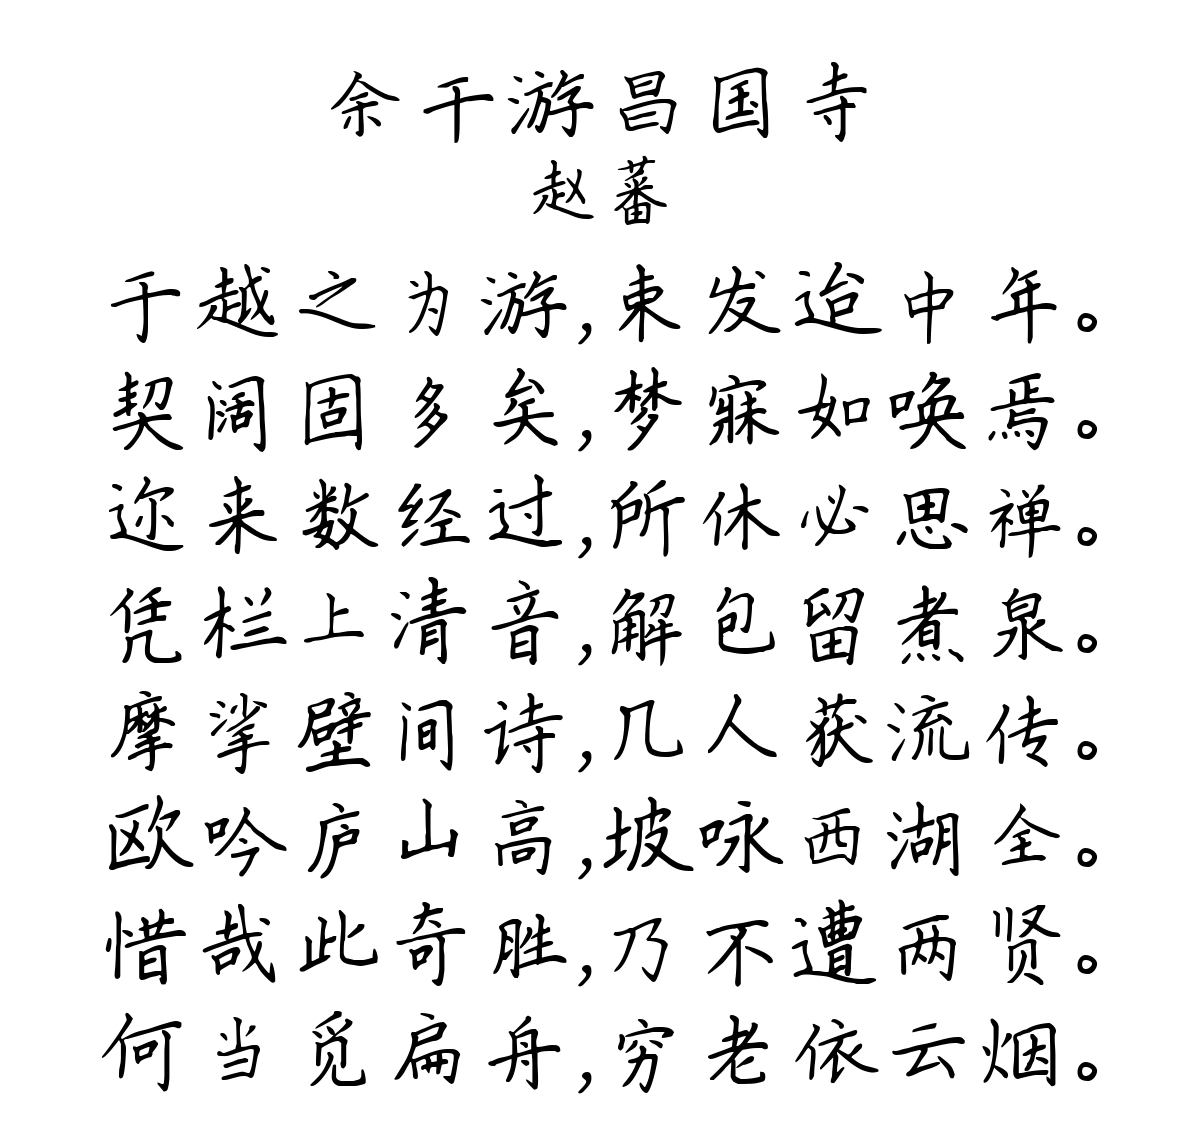 余干游昌国寺
赵蕃
于越之为游,束发迨中年。
契阔固多矣,梦寐如唤焉。
迩来数经过,所休必思禅。
凭栏上清音,解包留煮泉。
摩挲壁间诗,几人获流传。
欧吟庐山高,坡咏西湖全。
惜哉此奇胜,乃不遭两贤。
何当觅扁舟,穷老依云烟。